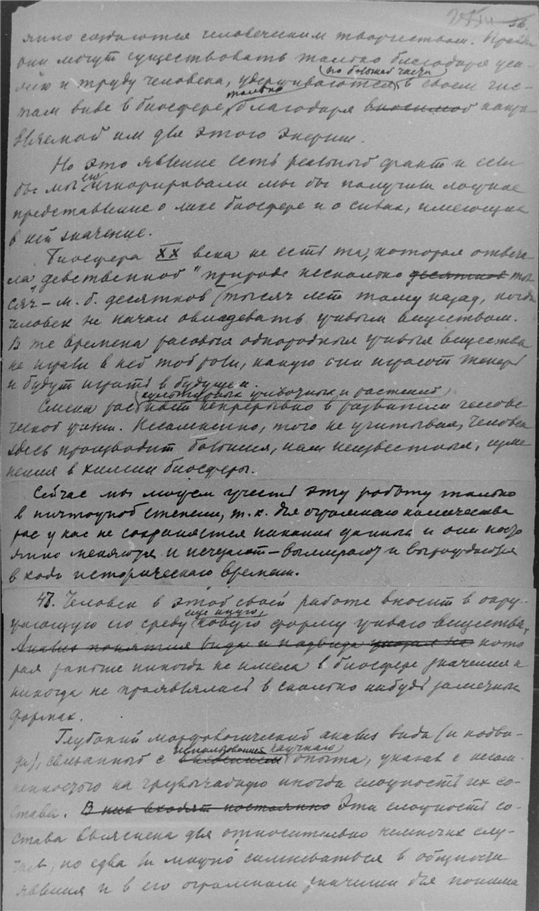 явно создаются человеческим творчеством. Правда
они могут существовать только благодаря уси-
лию и труду человека, удерживаются (по большей части) в своем чис-
том виде в биосфере только благодаря вносимой напра-
вляемой им для этого энергии.
Но это явление есть реальный факт и если
бы мы его игнорировали мы бы получили ложное
представление о лике биосферы и о силах, имеющих
в ней значение.
Биосфера XX века не есть та, которая отвеча-
ла „девственной" природе несколько десятков ты-
сяч - м.б. десятков тысяч лет тому назад, когда
человек не начал овладевать живым веществом.
В те времена расовые однородные живые вещества
не играли в ней той роли, какую они играют теперь
и будут играть в будущем.
Смена рас (культурных животных и растений) идет непрерывно в развитии человe-
ческой жизни. Несомненно, того не учитывая, человек
здесь производит большия, нам неизвестныя, изме-
нения в химии биосферы.
Сейчас мы можем учесть эту работу только
в ничтожной степени, т.к. для огромнаго количества
рас у нас не сохраняется никаких данных и они посто-
янно меняются и исчезают - вымирают и вырождаются
в ходе историческаго времени.
47. Человек в этой своей работе вносит в окру-
жающую его среду еще иную новую форму живаго вещества,
Анализ понятия вида и подвида указал на кото-
рая раньше никогда не имела в биосфере значения и
никогда не проявлялась в сколько нибудь заметных
формах.
Глубокий морфологический анализ вида (и подви-
да), связанный с использованием научнаго опыта, указал с несом-
ненностью на чрезвычайную иногда сложность их со-
става. В них входят постоянно Эта сложность со-
става выяснена для относительно немногих слу-
чаев, но едва ли можно сомневаться в общности
явления и в его огромном значении для понима